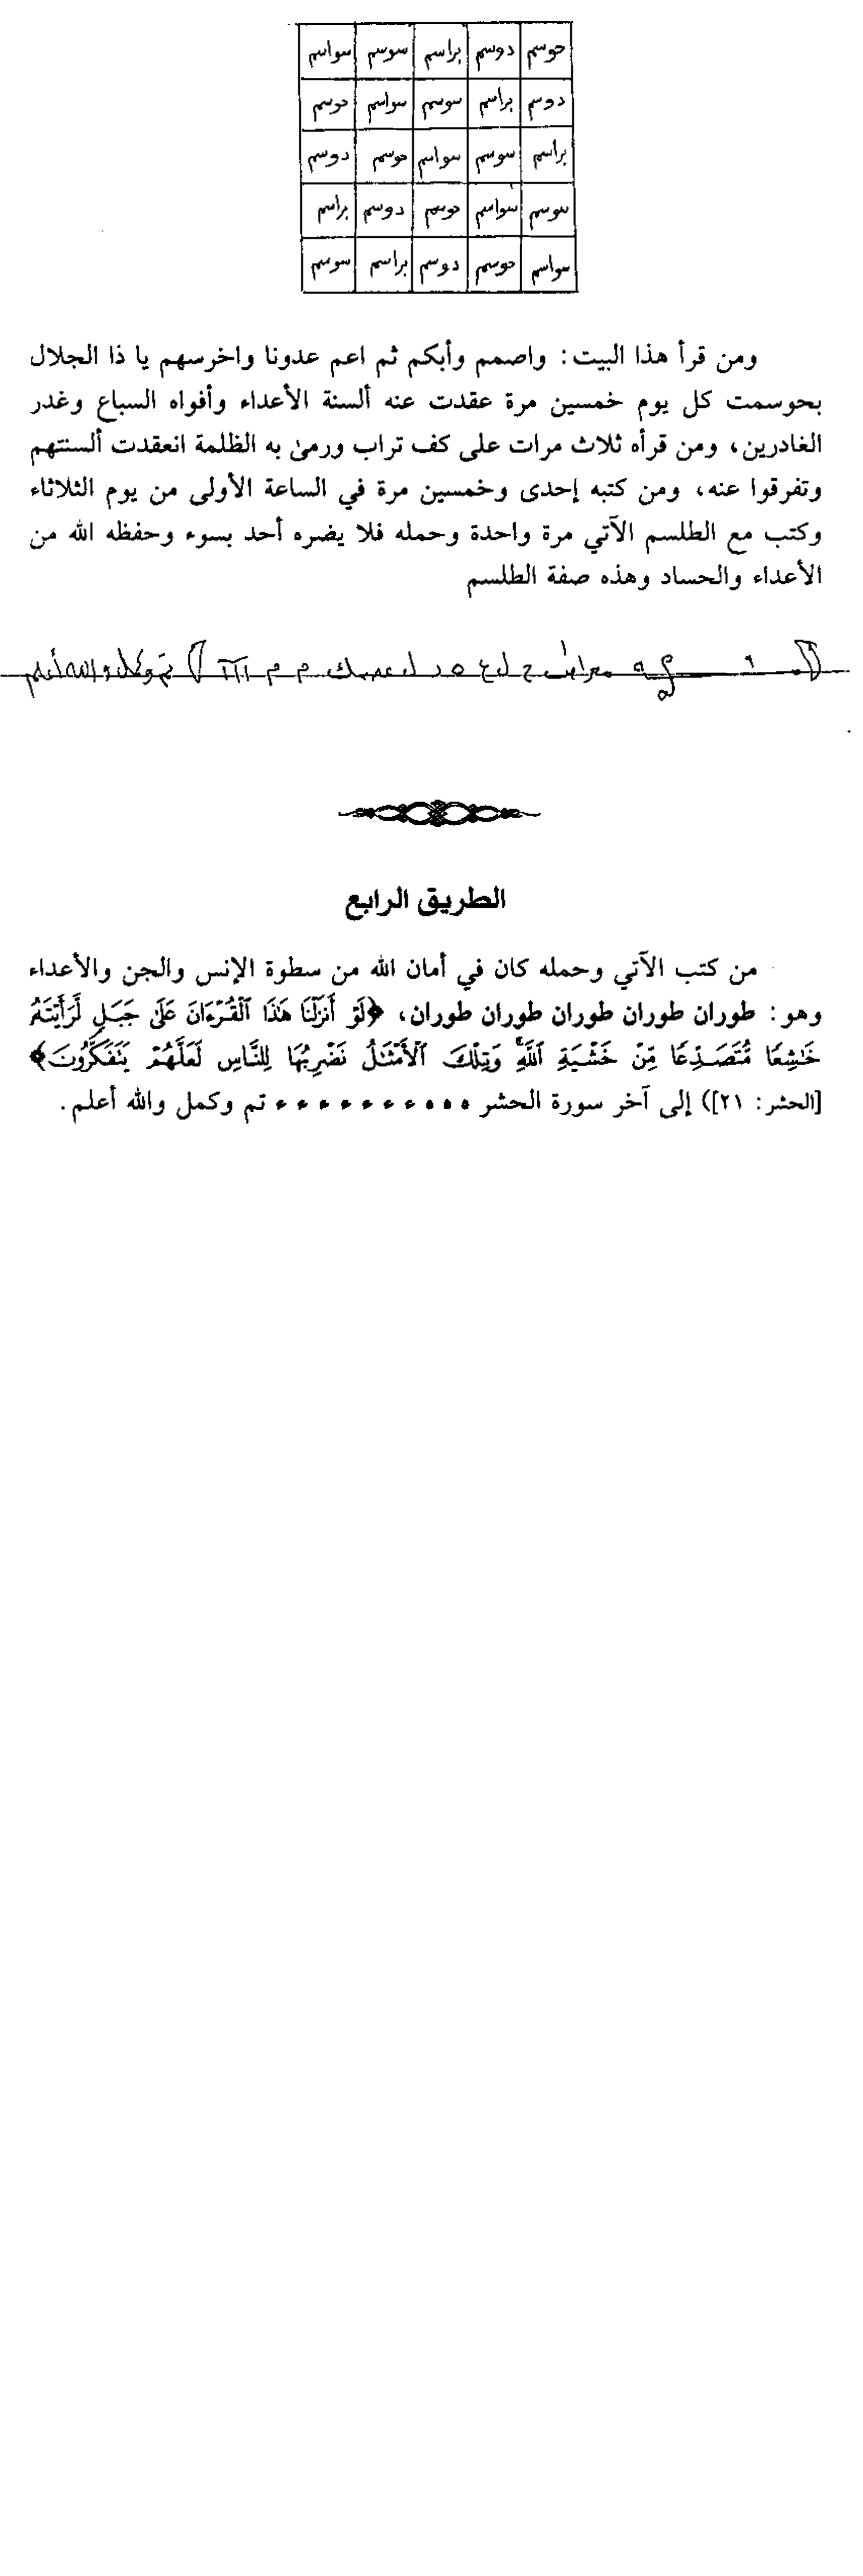 حوسم دوسم براسم سوسم سواسم
دوسم براسم سوسم سواسم حوسم
براسم سوسم سواسم حوسم دوسم
سوسم سواسم حوسم دوسم براسم
سواسم حوسم دوسم براسم سوسم
ومن قرأ هذا البيت: واصمم وأبكم ثم اعم عدونا واخرسهم يا ذا الجلال
بحوسمت كل يوم خمسين مرة عقدت عنه ألسنة الأعداء وأفواه السباع وغدر
الغادرين، ومن قرأه ثلاث مرات على كف تراب ورمىٰ به الظلمة انعقدت ألسنتهم
وتفرقوا عنه، ومن كتبه إحدى وخمسين مرة في الساعة الأولى من يوم الثلاثاء
وكتب مع الطلسم الآتي مرة واحدة وحمله فلا يضره أحد بسوء وحفظه الله من
الأعداء والحساد وهذه صفة الطلسم
تم وكمل والله أعلم
الطريق الرابع
من كتب الآتي وحمله كان في أمان الله من سطوة الإنس والجن والأعداء
وهو: طوران طوران طوران طوران طوران، ﴿لَوْ أَنزَلْنَا هَٰذَا ٱلْقُرْءَانَ عَلَىٰ جَبَلٍ لَّرَأَيْتَهُۥ
خَٰشِعًا مُّتَصَدِّعًا مِّنْ خَشْيَةِ ٱللَّهِۚ وَتِلْكَ ٱلْأَمْثَٰلُ نَضْرِبُهَا لِلنَّاسِ لَعَلَّهُمْ يَتَفَكَّرُونَ﴾
[الحشر: ٢١]) إلى آخر سورة الحشر ٥ ٥ ٥ ء ء ء ء ء ء ء تم وكمل والله أعلم.